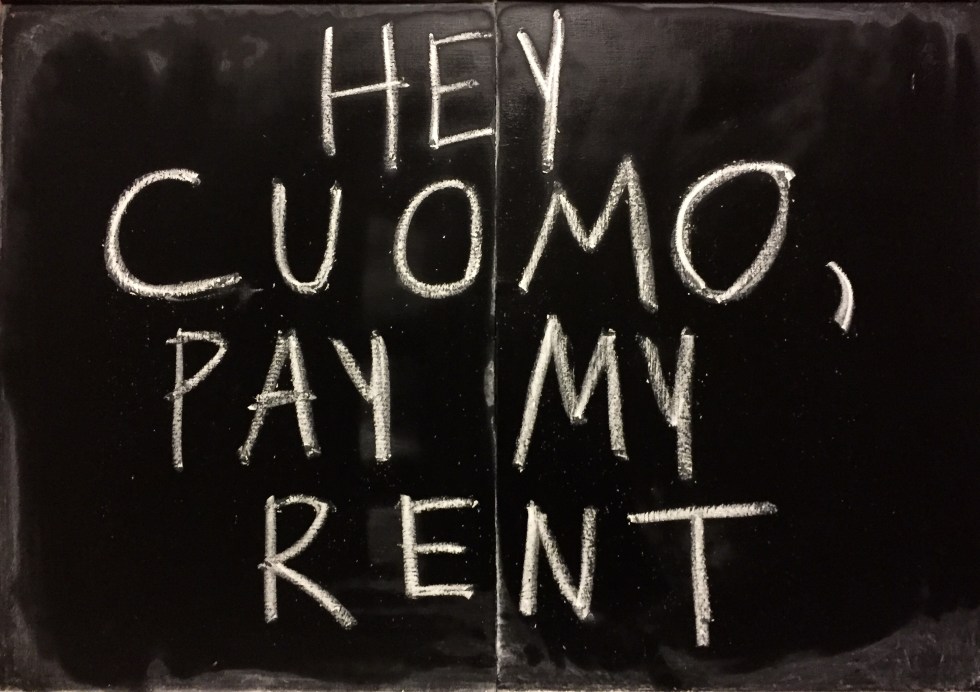 HEY
CUOMO,
PAY MY
RENT